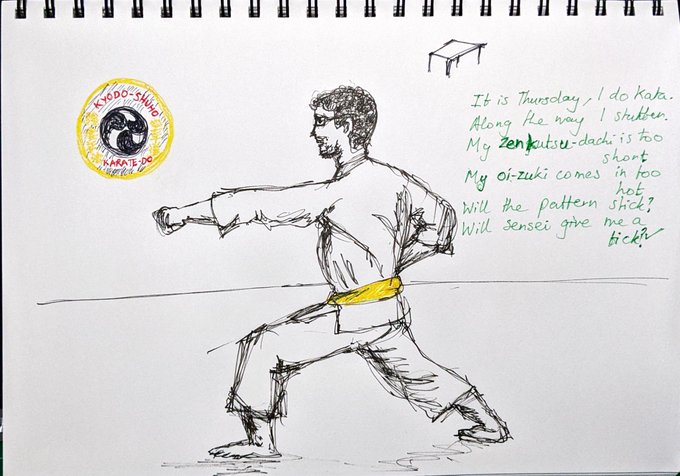 KYODO-SHUHO
KARATE-DO
It is Thursday, I do Kata.
Along the way I stutter.
My zenkutsu-dachi is too
short
My oi-zuki comes in too
hot
Will the pattern stick?
Will sensei give me a
tick?✓